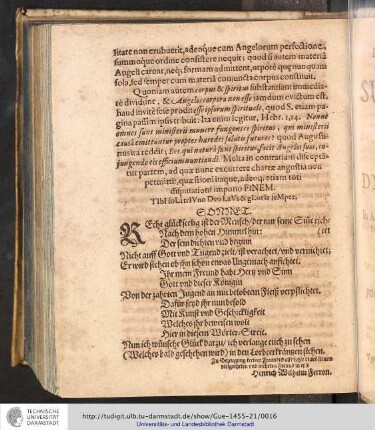 litate non erubuerit, adeoque cum Angelorum perfectione,
summoque ordine consistere nequit: quod si autem materiâ
Angeli carent, neq; formam admittent, utpote quæ nunquam
sola, sed semper cum materiâ conjuncta corpus constituit.
Quoniam autem corpus & spiritus substantias immedia-
tè dividunt, & Angelos corpora non esse jamdum evictum est,
haud invitè seie prodit esse ipsorum spirituale, quod S. etiam pa-
gina passim ipsis tribuit: Ita enim legitur, Hebr. 1, 14. Nonne
omnes sunt ministerii munere fungentes spiritus, qui ministerii
causâ emittuntur propter hæredes salutis futuros? quod Augusti-
nus ita reddit; Ees qui naturâ sunt spiritus, facit Angelos suos, in-
jungendo eis officium nuntiandi. Multa in contrariam discepta-
tur partem, ad quæ nunc excutienda chartæ angustia non
permittit, quæ suoni itaque, adeoq; etiam toti
disputationi impono FINEM.
TIbI soLI trIVno Deo LaVs & gLorIa seMper,
SONNET.
REcht glückseelig ist der Mensch/ der nur seine Sinn richt
Nach dem hohen Himmel hin: (tet
Der sein dichten und beginn
Nicht auff Gott und Tugend zielt/ ist verachtet/ und vernichtet;
Er wird stehen ob ihn schon etwas Ungemach anfichtet.
Ihr mein Freund habt Hertz und Sinn
Gott und dieser Königin
Von der zahrten Jugend an mit belobtem Fleiß verpflichtet.
Dafür seyd ihr nun besold
Mit Kunst und Geschickligkeit
Welches ihr beweisen wolt
Hier in diesem Wörter-Streit.
Nun ich wünsche Glück darzu/ ich verlange euch zu sehen
(Welches bald geschehen wird) in den Lorbeerkräntzen stehen.
Heinrich Wilhelm Ferron.
TECHNISCHE
UNIVERSITÄT
DARMSTADT
http://tudigit.ulb.tu-darmstadt.de/show/Gue-1455-21/0016
Universitäts- und Landesbibliothek Darmstadt